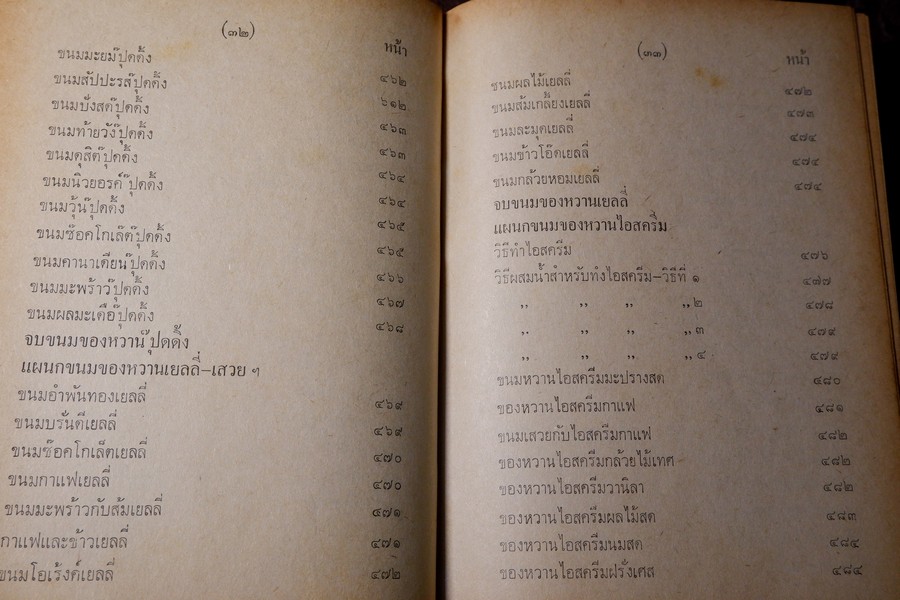 (๓๒)
หน้า
ขนมมะยมปุ๊ดดิ้ง ๔๖๒
ขนมสัปปะรสปุ๊ดดิ้ง ๖๑๒
ขนมบังสต์ปุ๊ดดิ้ง ๔๖๓
ขนมท้ายวังปุ๊ดดิ้ง ๔๖๓
ขนมดุสิตปุ๊ดดิ้ง ๔๖๔
ขนมนิวยอรค์ปุ๊ดดิ้ง ๔๖๔
ขนมวุ้นปุ๊ดดิ้ง ๔๖๕
ขนมช๊อคโกเล๊ตปุ๊ดดิ้ง ๔๖๕
ขนมคานาเดียนปุ๊ดดิ้ง ๔๖๖
ขนมมะพร้าวปุ๊ดดิ้ง ๔๖๗
ขนมผลมะเดื่อปุ๊ดดิ้ง ๔๖๘
จบขนมของหวานปุ๊ดดิ้ง
แผนกขนมของหวานเยลลี่–เสวย ฯ
ขนมอำพันทองเยลลี่ ๔๖๙
ขนมบรั่นดีเยลลี่ ๔๖๙
ขนมช๊อคโกเล็ตเยลลี่ ๔๗๐
ขนมกาแฟเยลลี่ ๔๗๐
ขนมมะพร้าวกับส้มเยลลี่ ๔๗๑
กาแฟและข้าวเยลลี่ ๔๗๑
ขนมโอเร้งค์เยลลี่ ๔๗๒
(๓๓)
หน้า
ขนมผลไม้เยลลี่ ๔๗๒
ขนมส้มเกลี้ยงเยลลี่ ๔๗๓
ขนมละมุดเยลลี่ ๔๗๔
ขนมข้าวโอ๊ตเยลลี่ ๔๗๔
ขนมกล้วยหอมเยลลี่ ๔๗๔
จบขนมของหวานเยลลี่
แผนกขนมของหวานไอสครีม
วิธีทำไอสครีม ๔๗๖
วิธีผสมน้ำสำหรับทำไอสครีม–วิธีที่ ๑ ๔๗๗
,, ,, ,, ,, ๒ ๔๗๘
,, ,, ,, ,, ๓ ๔๗๙
,, ,, ,, ,, ๔ ๔๗๙
ขนมหวานไอสครีมมะปรางสด ๔๘๐
ของหวานไอสครีมกาแฟ ๔๘๑
ขนมเสวยกับไอสครีมกาแฟ ๔๘๒
ของหวานไอสครีมกล้วยไม้เทศ ๔๘๒
ของหวานไอสครีมวานิลา ๔๘๒
ของหวานไอสครีมผลไม้สด ๔๘๓
ของหวานไอสครีมนมสด ๔๘๔
ของหวานไอสครีมฝรั่งเศส ๔๘๔